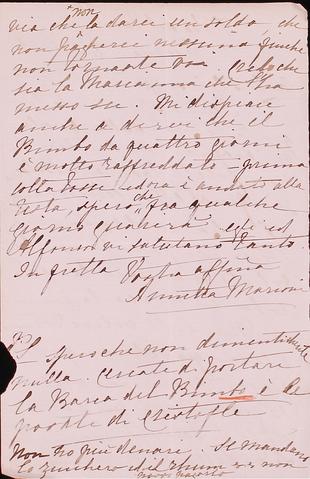 non
via che la darei un soldo, che
non nessuna finche
non tornate
sia la Mascanna che l'ha
messo su. Mi dispiace
anche a dirvi che il
Bimbo da quattro giorni
è molto raffreddato - prima
colla tosse ed ora è andato alla
testa, spero che fra qualche
giorno guarirà. ed
Alfonso vi salutano tanto.
In fretta Vostra affma
Annetta Marioni
P.S. spero che non dimenticherete
nulla. Cercate di portare
la Barca del Bimbo e le
posate di Cristofle
Non ho più denaro. Se mandano
lo zucchero ed il Rhum non